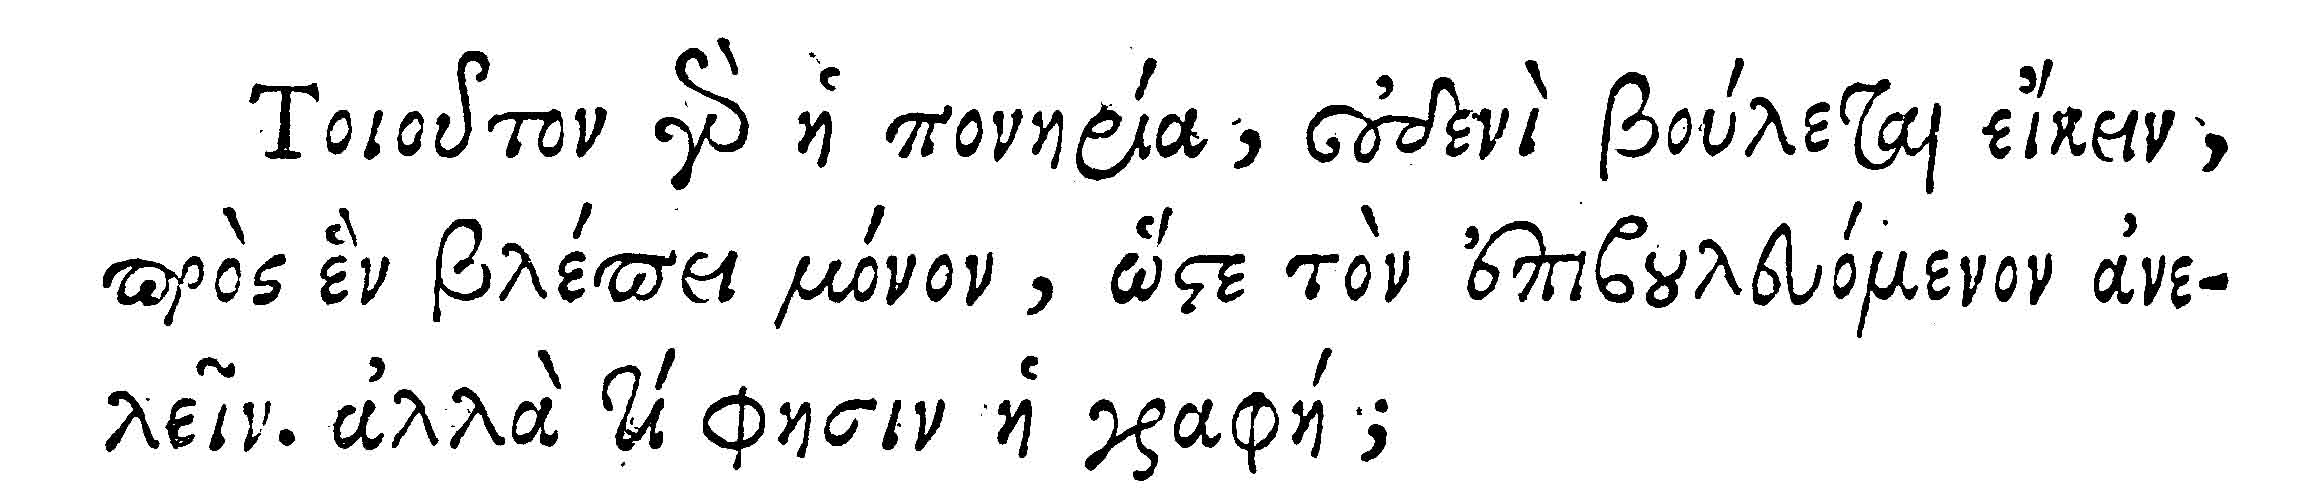 Τοιοῦτον γὰρ ἡ πονηρία, οὐδενὶ βούλεται εἴκειν,
πρὸς ἓν βλέπει μόνον, ὥστε τὸν ἐπιβουλευόμενον ἀνε-
λεῖν. ἀλλὰ τί φησιν ἡ γραφή;